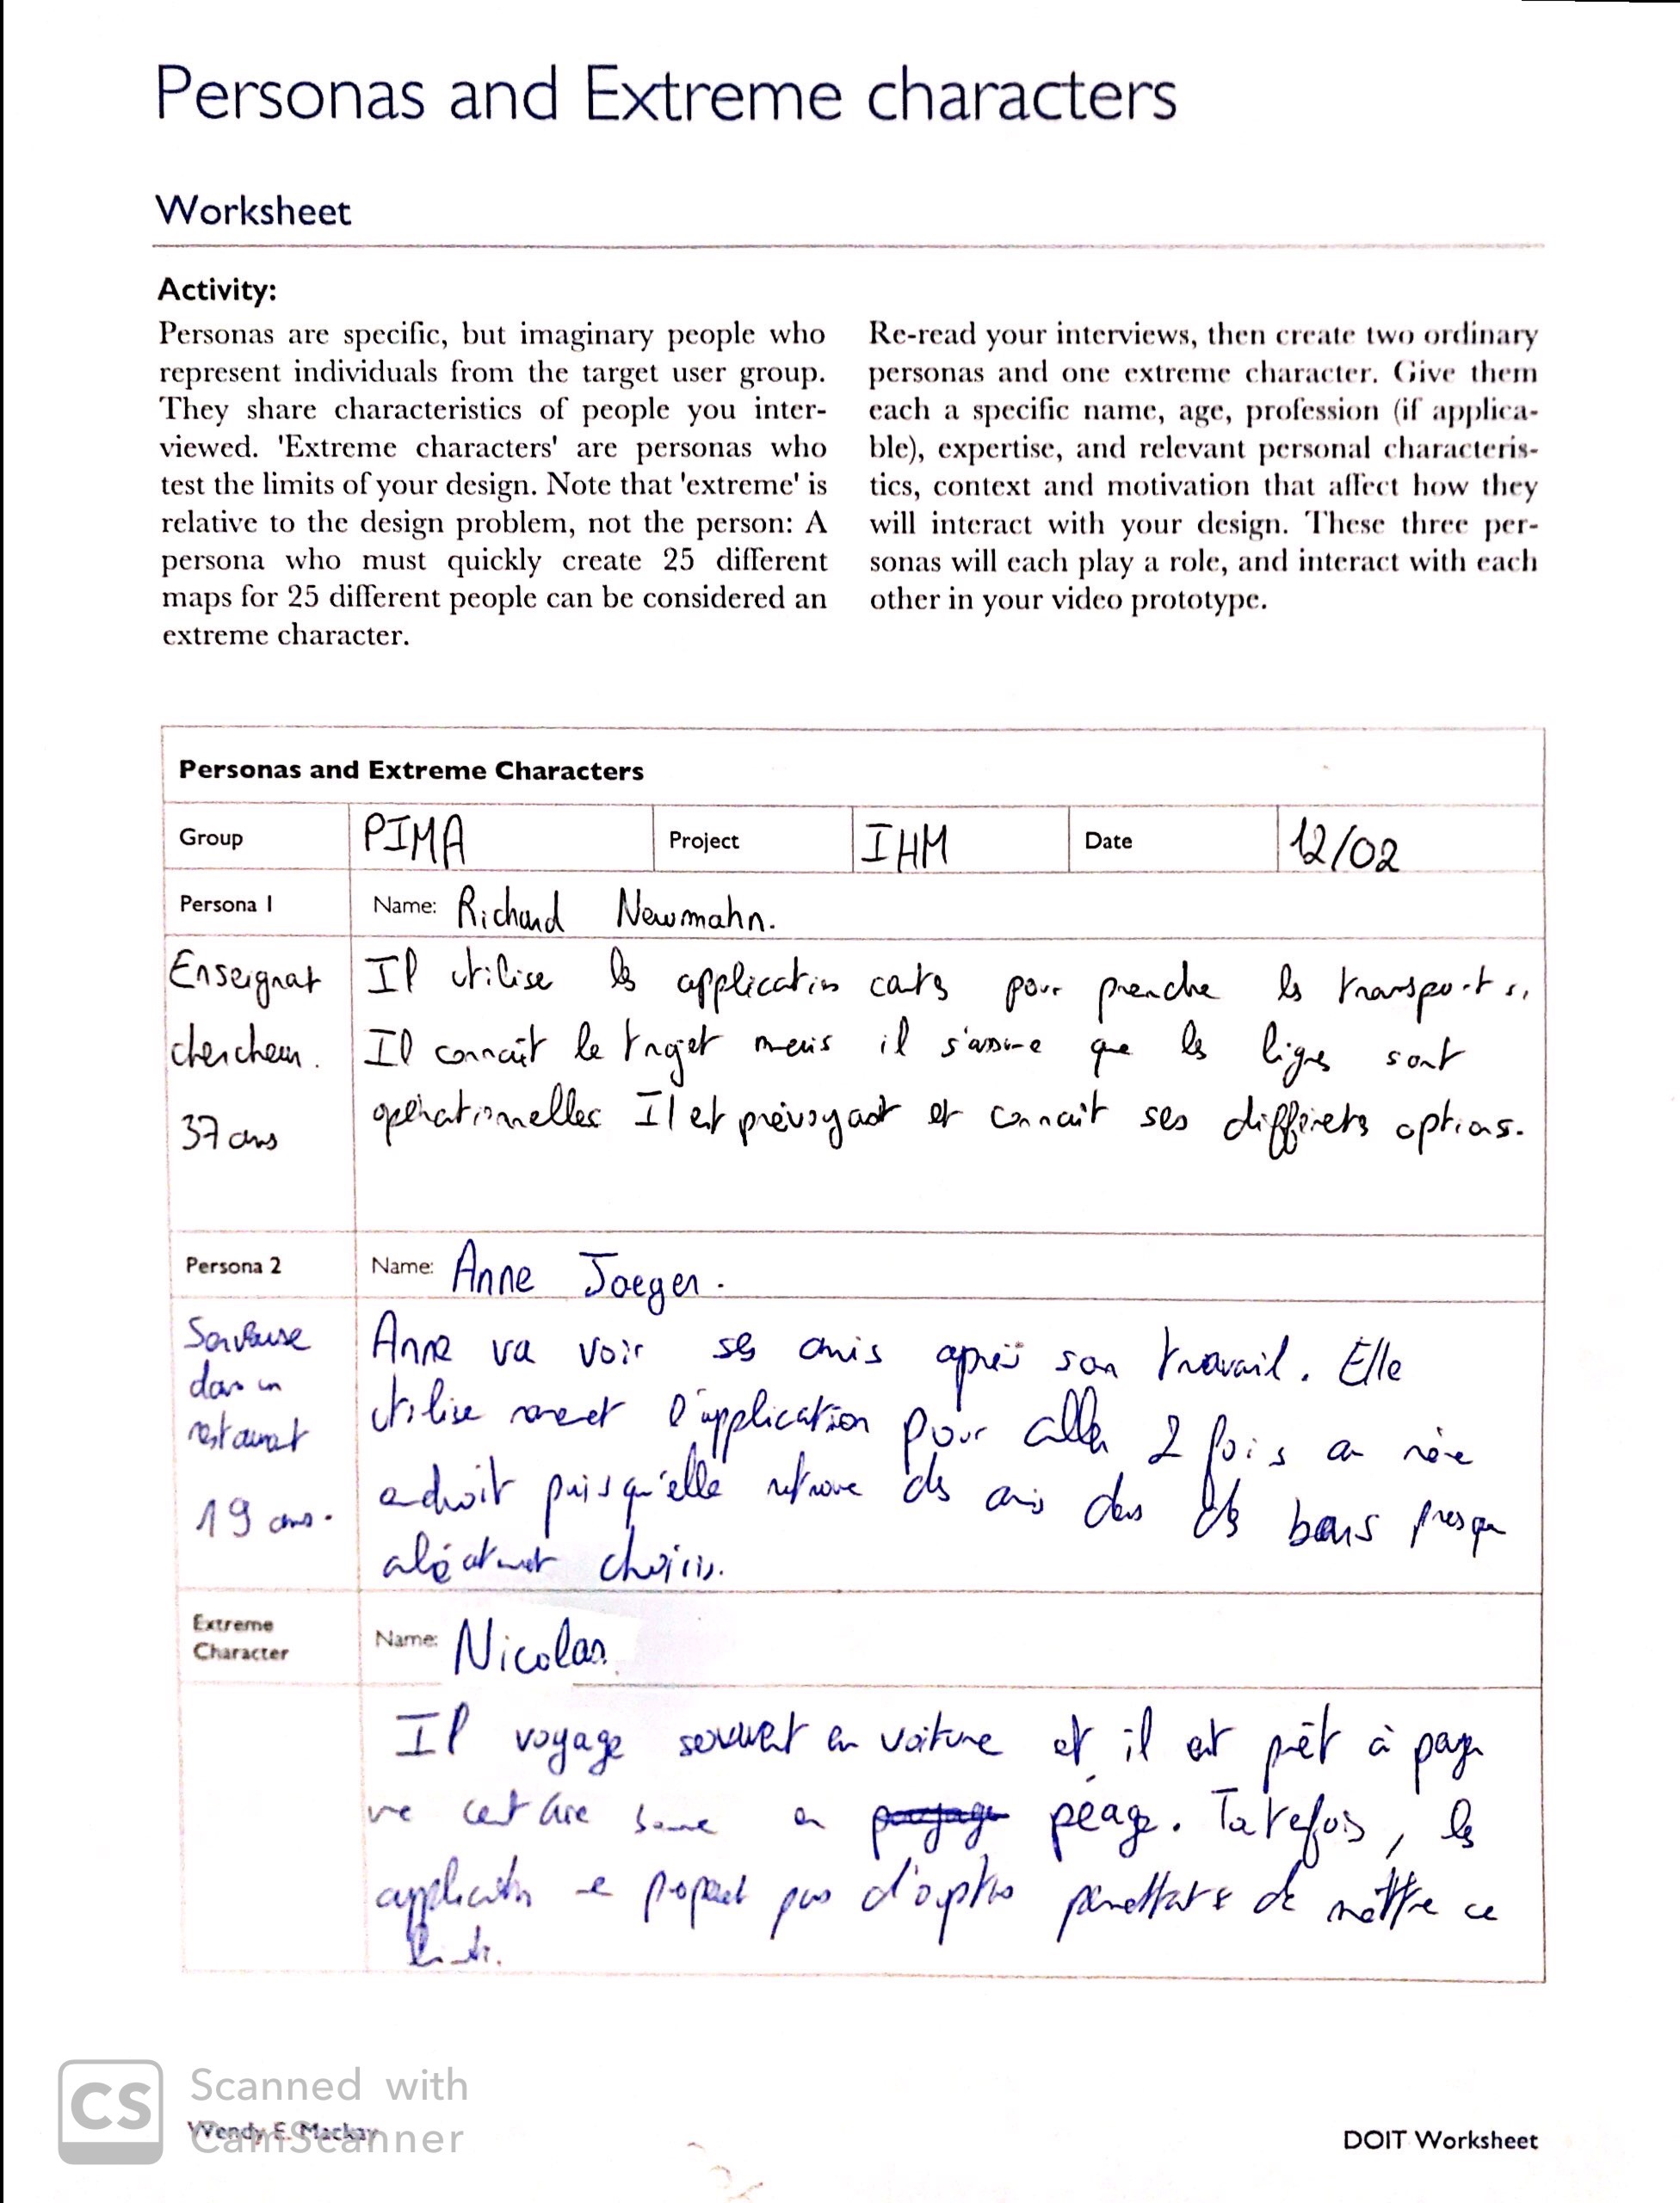 Personas and Extreme characters
Worksheet
Activity:
Personas are specific, but imaginary people who
represent individuals from the target user group.
They share characteristics of people you inter-
viewed. 'Extreme characters' are personas who
test the limits of your design. Note that 'extreme' is
relative to the design problem, not the person: A
persona who must quickly create 25 different
maps for 25 different people can be considered an
extreme character.
Re-read your interviews, then create two ordinary
personas and one extreme character. Give them
each a specific name, age, profession (if applica-
ble), expertise, and relevant personal characteris-
tics, context and motivation that affect how they
will interact with your design. These three per-
sonas will each play a role, and interact with each
other in your video prototype.
Personas and Extreme Characters
Group PIMA Project IHM Date 12/02
Persona 1 Name: Richard Newmahn.
Enseignat
chercheur.
37 ans
Il utilise les application carts pour prendre les transports,
Il connaît le trajet mais il s'assure que les lignes sont
opérationnelles Il est prévoyant et connaît ses différents options.
Persona 2 Name: Anne Jaeger.
Serveuse
dans un
restaurant
19 ans.
Anne va voir ses amis après son travail. Elle
utilise rarement l'application pour aller 2 fois au même
endroit puisqu'elle retrouve des amis dans des bars presque
aléatoirement choisis.
Extreme
Character
Name: Nicolas
Il voyage souvent en voiture et il est prêt à payer
une certaine somme en péage. Toutefois, les
application ne propose pas d'options permettant de mettre ce
Scanned with
CamScanner
Wendy E. Mackay
DOIT Worksheet
CS